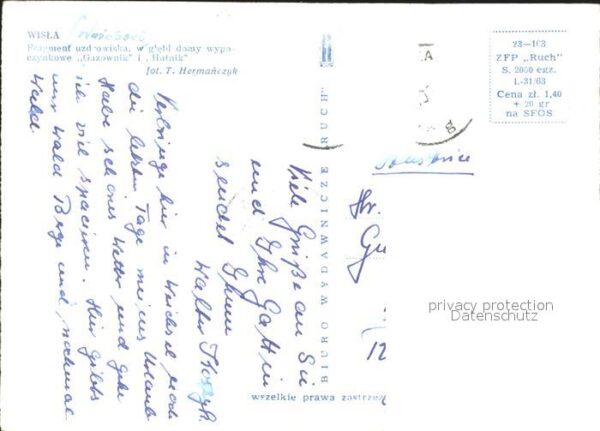 WISŁA
Fragment uzdrowiska, w głębi domy wypo-
czynkowe „Gazownik" i „Hutnik"
fot. T. Hermańczyk
23—103
ZFP „Ruch"
S. 2000 egz.
I.-31/63
Cena zł. 1,40
+ 20 gr
na SFOS
BIURO WYDAWNICZE RUCH
wszelkie prawa zastrzeż
Verbringe hier in Weichsel noch
die letzten Tage meines Urlaub
Habe schönes Wetter und gehe
ich viel spazieren. Hier gibts
nur Wald Berge und nochmal
Wald.
Viele Grüße an Sie
und Ihre Gattin
sendet Ihnen
Walter
Hr.
Gu
12
privacy protection
Datenschutz